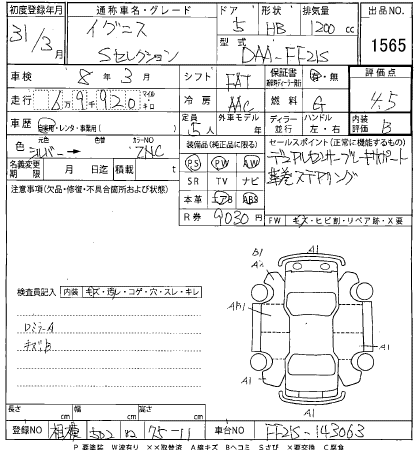 初度登録年月 通称車名・グレード ドア 形状 排気量 出品NO
31年/3月 イグニス Sセレクション 5 HB 1200cc 1565
型式 DAA-FF21S
車検 8年 3月 シフト FAT 保証書 有・無 評価点
走行 6万9千920 マイル キロ 冷房 AAC 燃料 G 4.5
車歴 自家用・レンタ・事業用( ) 定員 5人 外車モデル 年 ディーラー 並行 ハンドル 左・右 内装評価 B
色 シルバー → カラーNO ZNC
装備品(純正品に限る) セールスポイント(正常に機能するもの)
PS PW AW デュアルカメラブレーキサポート
名義変更期限 月 日迄 積載 t SR TV ナビ 革巻ステアリング
注意事項(欠品・修復・不具合箇所および状態) 本革 エアB ABS
R券 9030円 FW キズ・ヒビ割・リペア跡・X要
A1
B1
A2
A1
検査員記入 内装 キズ・汚レ・コゲ・穴・スレ・キレ
AB1
A1
DミラーA
キズ小B
A1
長さ cm 幅 cm 高さ cm
登録NO 相模 502 75-11 車台NO FF21S-143063
P 要塗装 W 波有り ××取替済 A 線キズ Bヘコミ Sさび ×要交換 C 腐食